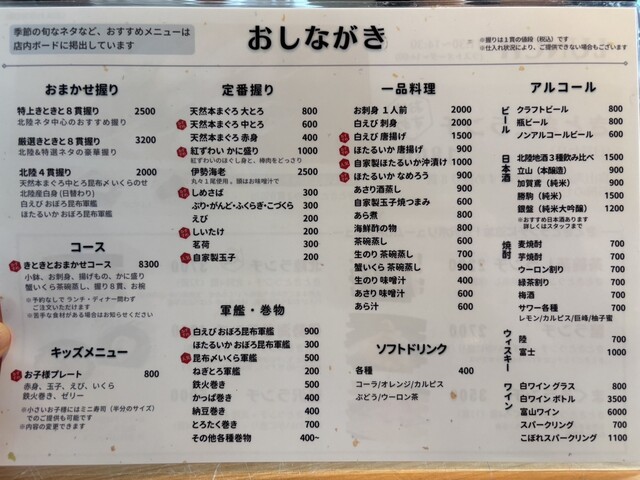 季節の旬なネタなど、おすすめメニューは
店内ボードに掲出しています
おしながき
※握りは1貫の値段（税込）です
※仕入れ状況により、ご提供できない場合もございます
おまかせ握り
特上きときと8貫握り 2500
北陸ネタ中心のおすすめ握り
厳選きときと8貫握り 3200
北陸&特選ネタの豪華握り
北陸4貫握り 2000
天然本まぐろ中とろ昆布〆いくらのせ
北陸産白身(日替わり)
白えび おぼろ昆布軍艦
ほたるいか おぼろ昆布軍艦
コース
きときとおまかせコース 8300
小鉢、お刺身、揚げもの、かに盛り
蟹いくら茶碗蒸し、握り8貫、お椀
※予約なしで ランチ・ディナー問わず
ご注文いただけます
※苦手な食材がある場合はお知らせください
キッズメニュー
お子様プレート 800
赤身、玉子、えび、いくら
鉄火巻き、ゼリー
※小さいお子様にはミニ寿司（半分のサイズ）
でのご提供も可能です
※内容の変更できます
定番握り
天然本まぐろ 大とろ 800
天然本まぐろ 中とろ 600
天然本まぐろ 赤身 400
紅ずわい かに盛り 1000
紅ずわいのほぐし身と、棒肉をどっさり
伊勢海老 2500
丸々1尾使用。頭はお味噌汁で
しめさば 300
ぶり・がんど・ふくらぎ・こづくら 300
えび 200
しいたけ 200
茗荷 300
自家製玉子 200
軍艦・巻物
白えび おぼろ昆布軍艦 900
ほたるいか おぼろ昆布軍艦 300
昆布〆いくら軍艦 500
ねぎとろ軍艦 200
鉄火巻き 500
かっぱ巻き 400
納豆巻き 400
とろたく巻き 700
その他各種巻物 400~
一品料理
お刺身 1人前 2000
白えび 刺身 2000
白えび 唐揚げ 1500
ほたるいか 唐揚げ 900
自家製ほたるいか沖漬け 1000
ほたるいか なめろう 900
あさり酒蒸し 900
自家製玉子焼つまみ 600
あら煮 800
海鮮酢の物 800
茶碗蒸し 600
生のり 茶碗蒸し 700
蟹いくら 茶碗蒸し 900
生のり 味噌汁 400
あさり 味噌汁 600
あら汁 600
ソフトドリンク
各種 400
コーラ/オレンジ/カルピス
ぶどう/ウーロン茶
アルコール
ビール
クラフトビール 800
瓶ビール 800
ノンアルコールビール 600
日本酒
北陸地酒3種飲み比べ 1500
立山（本醸造） 900
加賀鳶（純米） 900
勝駒（純米） 1500
銀盤（純米大吟醸） 1200
※おすすめ日本酒あります
詳しくはスタッフまで
焼酎
麦焼酎 700
芋焼酎 700
ウーロン割り 700
緑茶割り 700
梅酒 700
サワー各種 700
レモン/カルピス/巨峰/柚子蜜
ウィスキー
陸 700
富士 1000
ワイン
白ワイン グラス 800
白ワイン ボトル 3500
富山ワイン 6000
スパークリング 700
こぼれスパークリング 1100